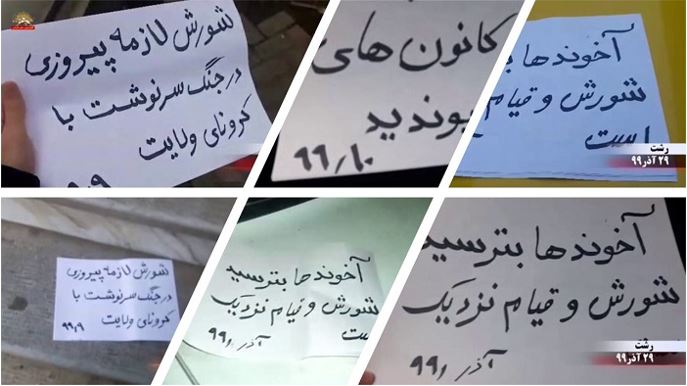 شورش لازمه پیروزی
در جنگ سرنوشت با
کرونای ولایت
۹۹٫۹
کانون های
پیوندید
۹۹٫۱۰
آخوندها
شورش و قیام
است
رشت
۲۹ آذر ۹۹
شورش لازمه پیروزی
در جنگ سرنوشت با
کرونای ولایت
۹۹٫۹
آخوندها بترسید
شورش و قیام نزدیک
است
آذر ۹۹
آخوندها بترسید
شورش و قیام نزدیک
آذر ۹۹
رشت
۲۹ آذر ۹۹